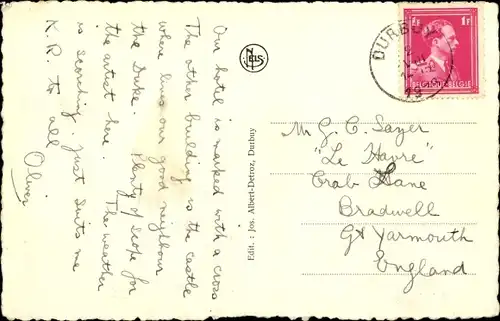 Our hotel is marked with a cross
The other building is the castle
where lives our good neighbour
the Duke. Plenty of scope for
the artist here. The weather
is scorching. Just suits me
K.R. to all Oliver
NELS
Edit. : Jos. Albert-Detroz, Durbuy
DURBUY
19
1F 1F
BELGIE-BELGIQUE
Mr G. C. Sayer
"Le Havre"
Crab Lane
Bradwell
Gt Yarmouth
England